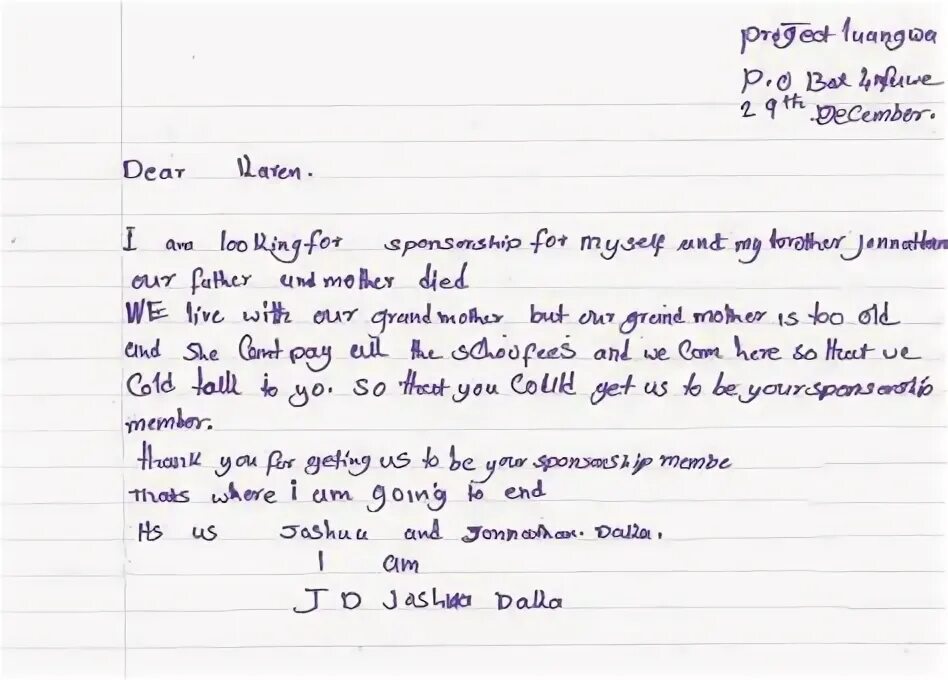 project luangwa
P.O Box Mfuwe
29th December.
Dear Karen.
I am looking for sponsorship for myself and my brother Jonnathan
our father and mother died
WE live with our grandmother but our graind mother is too old
and she Cant pay all the schoofees and we Com here so that we
Cold talk to yo. so that you Could get us to be your sponsorship
member.
thank you for geting us to be your sponsorship membe
thats where i am going to end
Its us Joshua and Jonnathan. Dalla.
I am
J D Joshua Dalla